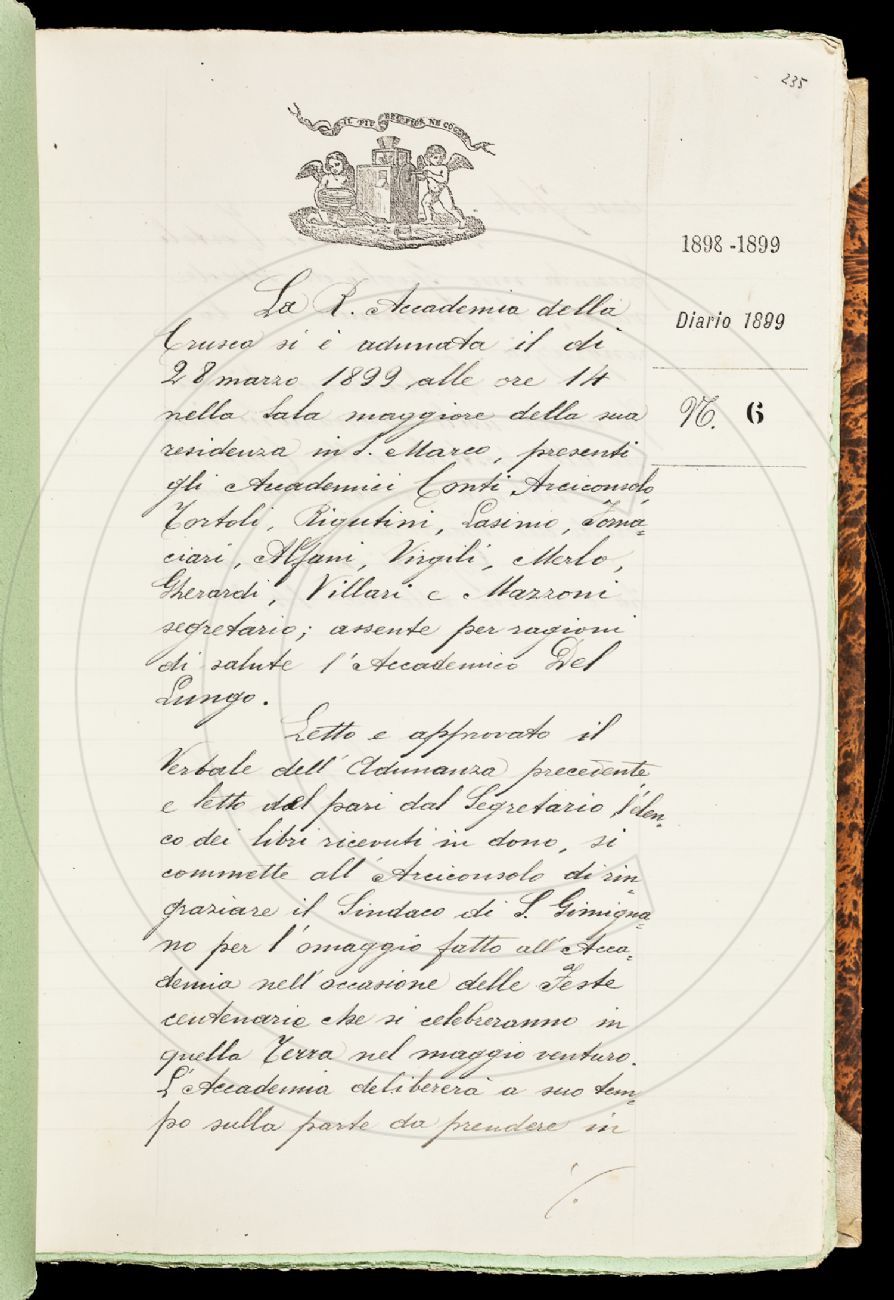 235
IL PIÙ BEL FIOR NE COGLIE
1898-1899
Diario 1899
N. 6
La R. Accademia della
Crusca si è adunata il dì
28 marzo 1899 alle ore 14
nella Sala maggiore della sua
residenza in S. Marco, presenti
gli Accademici Conti Arciconsolo,
Tortoli, Rigutini, Lasinio, Forna=
ciari, Alfani, Virgili, Merlo,
Gherardi, Villari e Mazzoni
segretario; assente per ragioni
di salute l'Accademico Del
Lungo.
Letto e approvato il
Verbale dell'Adunanza precedente,
e letto del pari dal Segretario l'elen=
co dei libri ricevuti in dono, si
commette all'Arciconsolo di rin=
graziare il Sindaco di S. Gimigna=
no per l'omaggio fatto all'Acca=
demia nell'occasione delle Feste
centenarie che si celebreranno in
quella Terra nel maggio venturo.
L'Accademia delibererà a suo tem=
po sulla parte da prendere in
./.